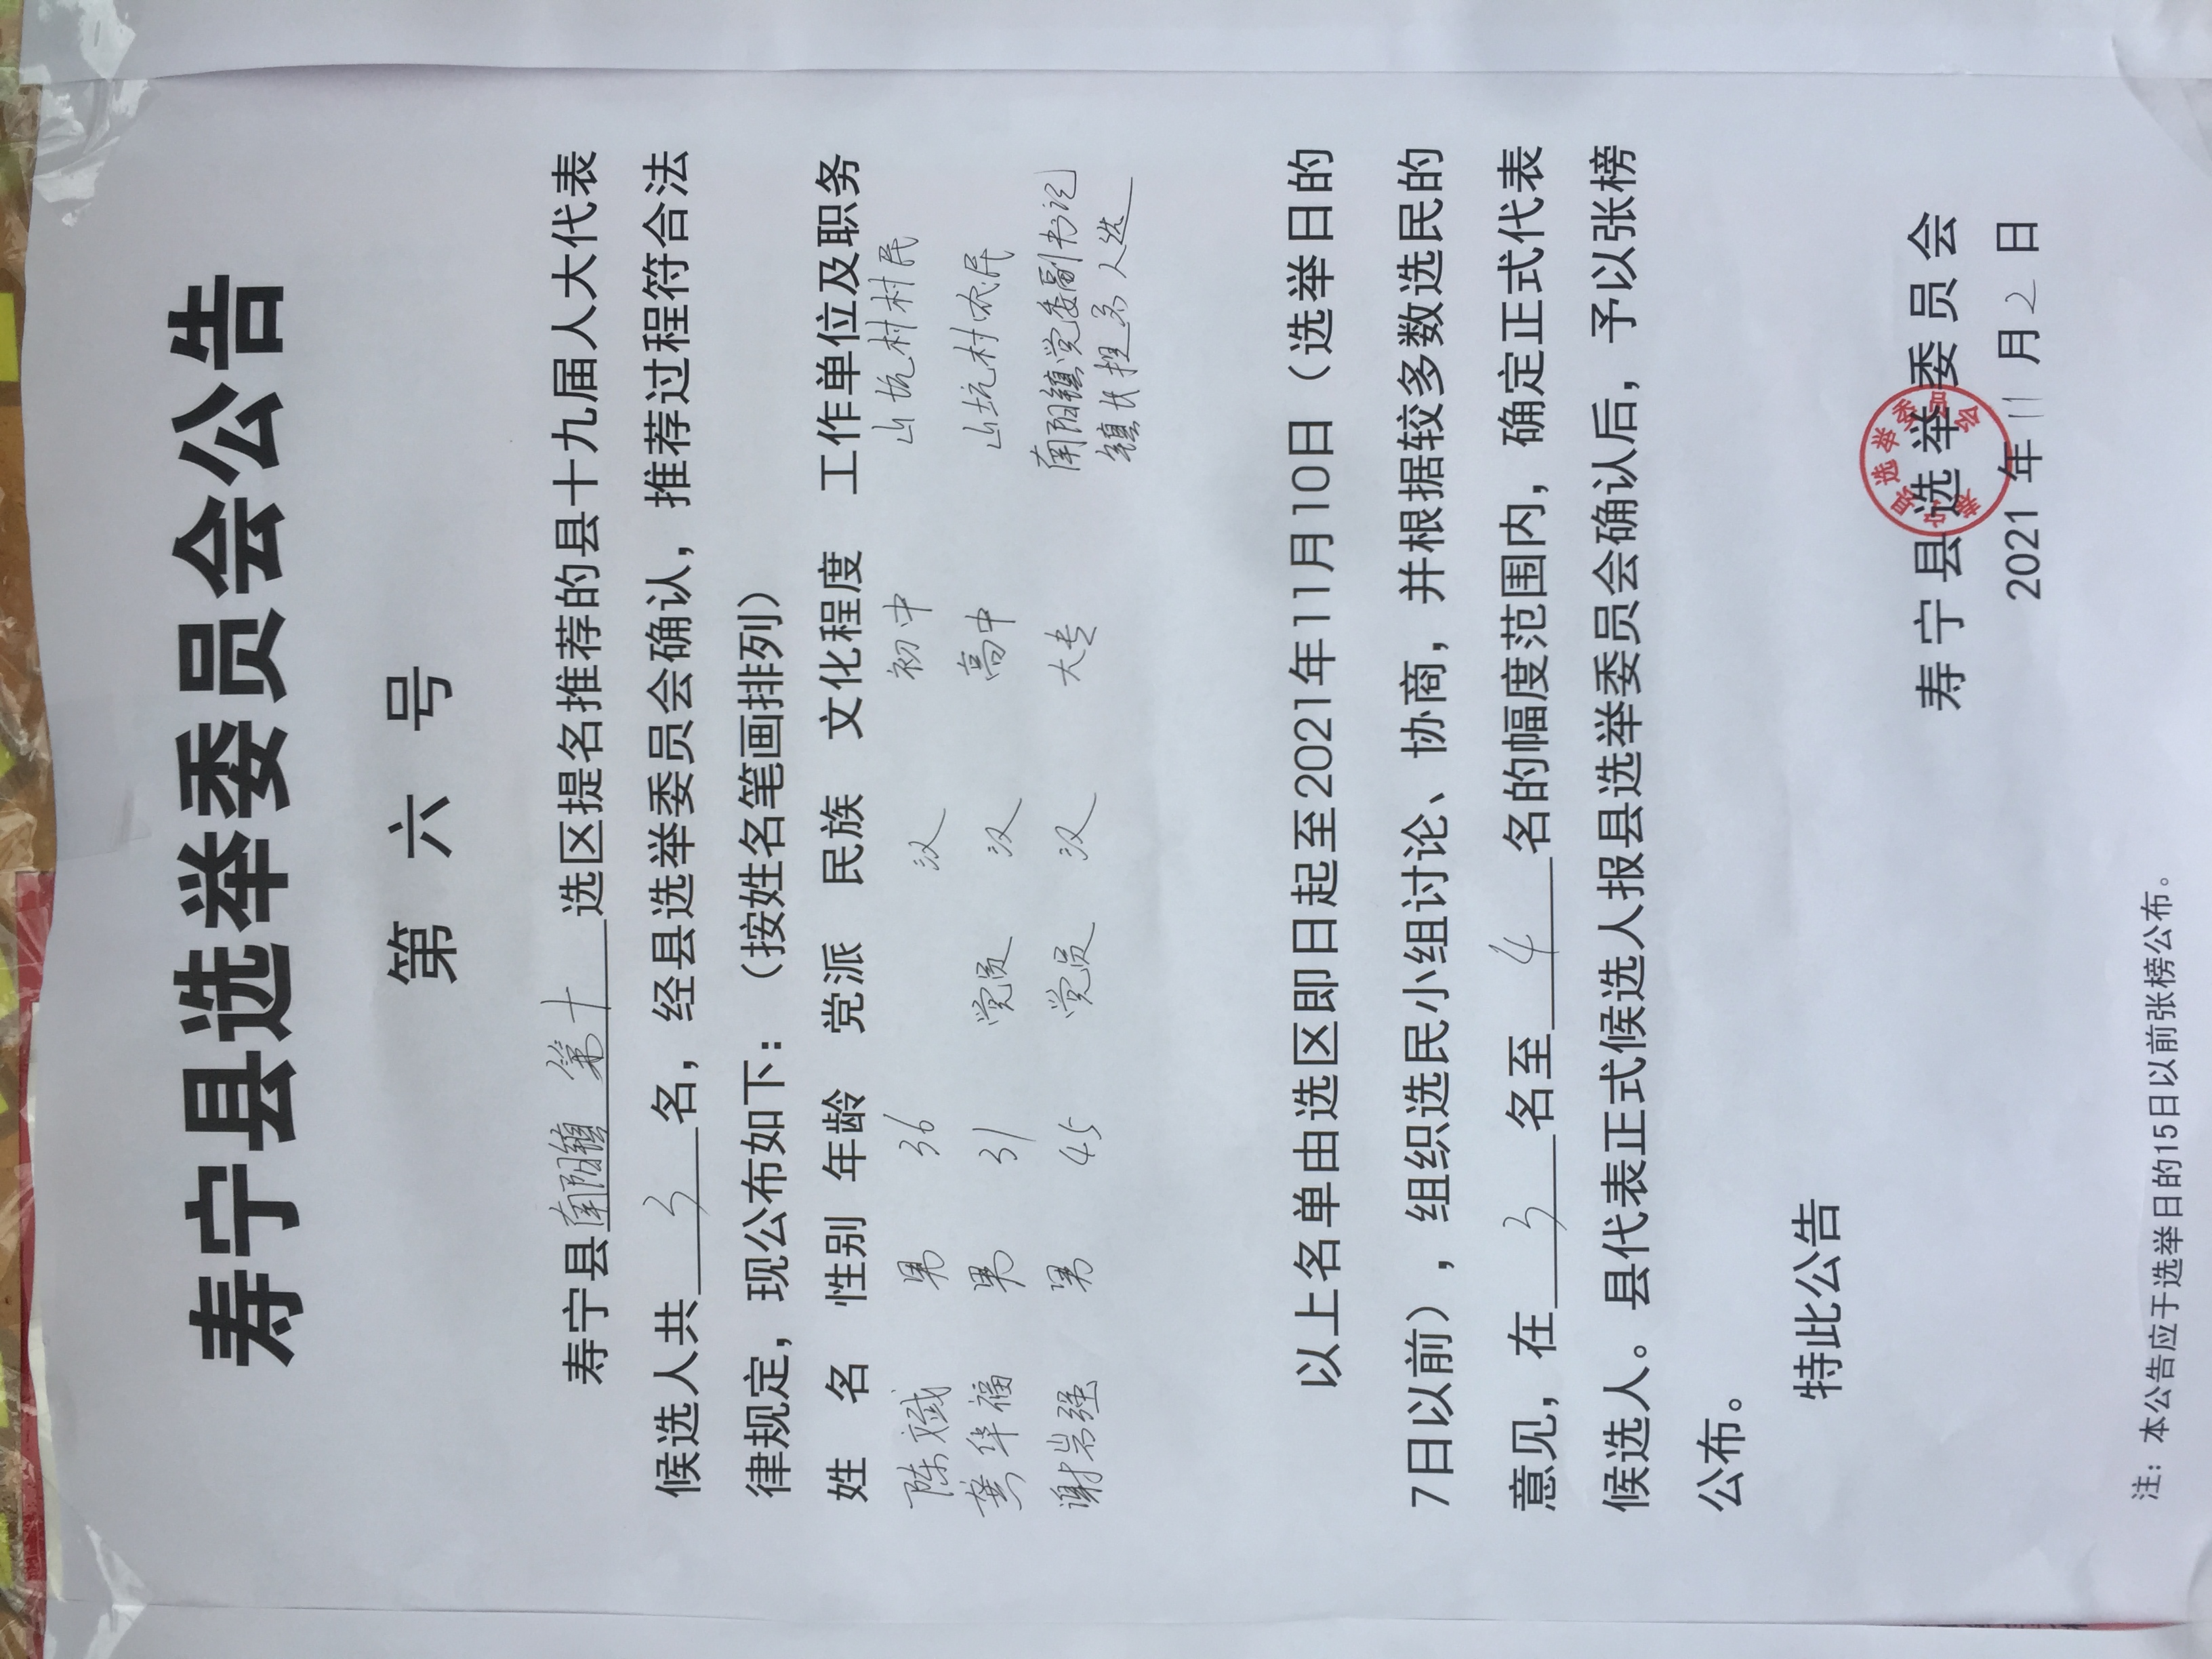 寿宁县选举委员会公告
第六号
寿宁县南阳镇 第十选区提名推荐的县十九届人大代表
候选人共3名，经县选举委员会确认，推荐过程符合法
律规定，现公布如下：（按姓名笔画排列）
姓 名 性别 年龄 党派 民族 文化程度 工作单位及职务
陈斌 男 36 汉 初中 山坑村村民
龚华福 男 31 党员 汉 高中 山坑村农民
谢岩强 男 45 党员 汉 大专 南阳镇党委副书记
镇长提名人选
以上名单由选区即日起至2021年11月10日（选举日的
7日以前），组织选民小组讨论、协商，并根据较多数选民的
意见，在3名至4名的幅度范围内，确定正式代表
候选人。县代表正式候选人报县选举委员会确认后，予以张榜
公布。
特此公告
寿宁县选举委员会
寿宁县选举委员会
2021年11月2日
注：本公告应于选举日的15日以前张榜公布。